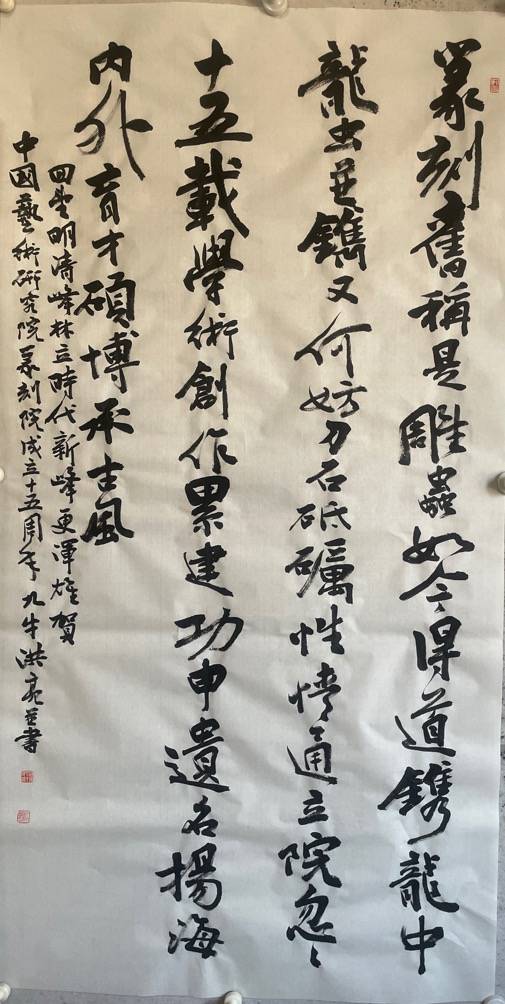 篆刻舊稱是雕蟲如今得道鐫龍中
龍虫并鐫又何妨刀石砥礪性情通立院忽〻
十五載學術創作累建功申遺名揚海
内外育才碩博承士風
回望明清峰林立時代新峰更渾雄賀
中國藝術研究院篆刻院成立十五周年九牛洪亮并書